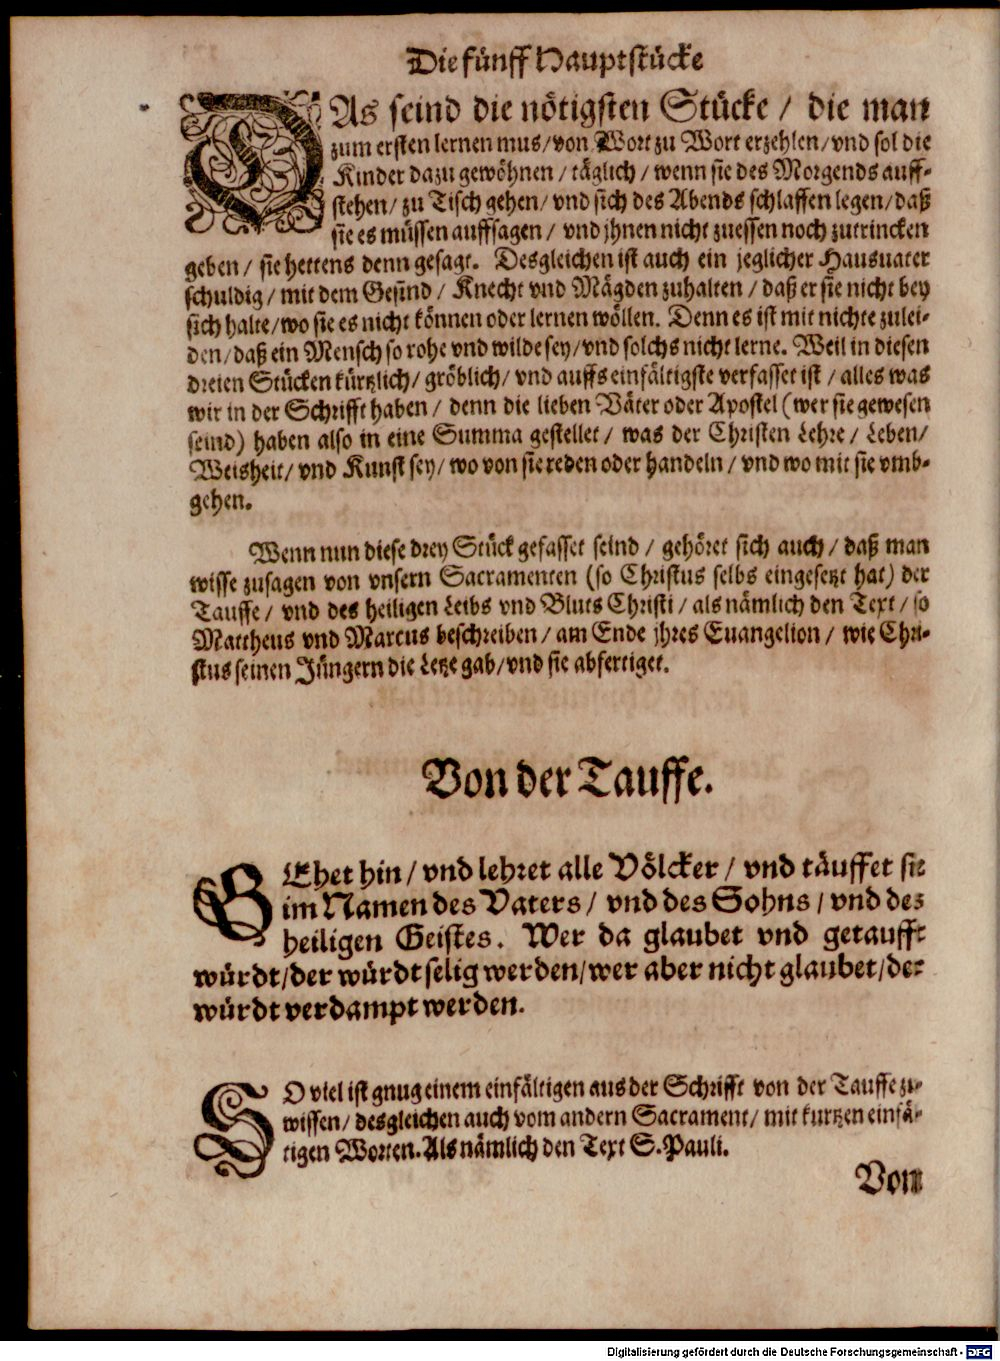 Die fünff Hauptstücke
DAs seind die nötigsten Stücke / die man
zum ersten lernen mus / von Wort zu Wort erzehlen / vnd sol die
Kinder dazu gewöhnen / täglich / wenn sie des Morgends auff-
stehen / zu Tisch gehen / vnd sich des Abends schlaffen legen / daß
sie es müssen auffsagen / vnd jhnen nicht zuessen noch zutrincken
geben / sie hettens denn gesagt. Desgleichen ist auch ein jeglicher Hausuater
schuldig / mit dem Gesind / Knecht vnd Mägden zuhalten / daß er sie nicht bey
sich halte / wo sie es nicht können oder lernen wöllen. Denn es ist mit nichte zulei-
den / daß ein Mensch so rohe vnd wilde sey / vnd solchs nicht lerne. Weil in diesen
dreien Stücken kürtzlich / gröblich / vnd auffs einfältigste verfasset ist / alles was
wir in der Schrifft haben / denn die lieben Väter oder Apostel (wer sie gewesen
seind) haben also in eine Summa gestellet / was der Christen Lehre / Leben /
Weisheit / vnd Kunst sey / wo von sie reden oder handeln / vnd wo mit sie vmb-
gehen.
Wenn nun diese drey Stück gefasset seind / gehöret sich auch / daß man
wisse zusagen von vnsern Sacramenten (so Christus selbs eingesetzt hat) der
Tauffe / vnd des heiligen Leibs vnd Bluts Christi / als nämlich den Text / so
Mattheus vnd Marcus beschreiben / am Ende jhres Euangelion / wie Chri-
stus seinen Jüngern die Letze gab / vnd sie abfertiget.
Von der Tauffe.
GEhet hin / vnd lehret alle Völcker / vnd täuffet sie
im Namen des Vaters / vnd des Sohns / vnd des
heiligen Geistes. Wer da glaubet vnd getaufft
würdt / der würdt selig werden / wer aber nicht glaubet / der
würdt verdampt werden.
SO viel ist gnug einem einfältigen aus der Schrifft von der Tauffe zu-
wissen / desgleichen auch vom andern Sacrament / mit kurtzen einfä-
tigen Worten. Als nämlich den Text S. Pauli.
Vom
Digitalisierung gefördert durch die Deutsche Forschungsgemeinschaft - DFG